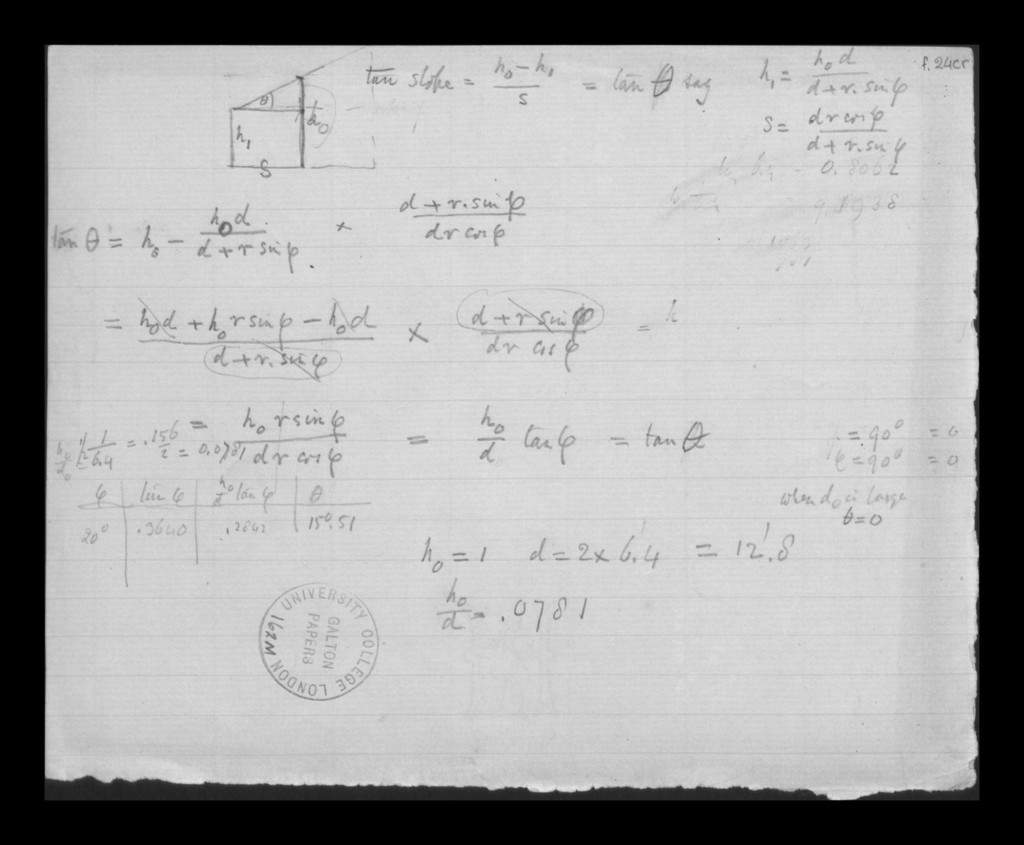 f. 24cr
tan slope = (h₀ − h₁)/s = tan θ say
h₁ = h₀ d/(d + r. sin φ)
s = d r cos φ/(d + r. sin φ)
θ
h₀
h₁
S
0.8062
tan θ = h₀ − h₀ d/(d + r sin φ) × (d + r. sin φ)/(d r cos φ)
= (h₀d + h₀ r sin φ − h₀ d)/(d + r. sin φ) × (d + r sin φ)/(d r cos φ) = h
= h₀ r sin φ/(d r cos φ) = h₀/d tan φ = tan θ
1/6.4 = .156/2 = 0.0781
= 90° = 0
φ = 90° = 0
when d₀ is large
θ = 0
φ | tan φ | h₀/d tan φ | θ
20° | .3640 | .2842 | 15°.51
h₀ = 1 d = 2 × 6'.4 = 12'.8
h₀/d = .0781
UNIVERSITY COLLEGE LONDON
GALTON
PAPERS
162M